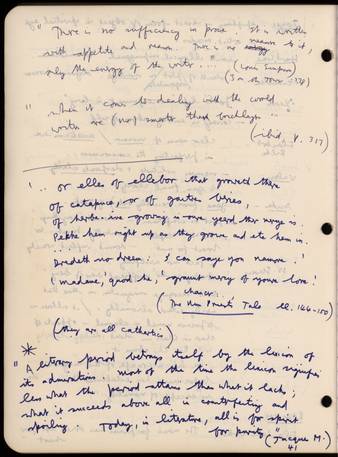 "There is no sufficiency in prose. It is written
with appetite and reason. There is no reason to it,
only the energy of the writer.
(Louis Simpson)
"when it comes to dealing with the world
writers are (no) smarter than bricklayers"
(ibid, p. 317)
'.. or elles of ellebor that groweth there
of catapuce, or of gaitre beries,
of herbe ive growing in oure yeerd ther merye is.
Pekke hem right up as they growe and ete hem in.
Dredeth no dreem: I can say you namore.'
'madame,' quod he, 'graunt mercy of youre lore!
Chaucer
(The Nun Priest's Tale ll. 144-150)
(they are all cathartics)
* "A literary period betrays itself by the lexicon of
its admirations. most of the time the lexicon signifies
less what the period attains than what it lacks;
what it succeeds above all in counterfeiting and
spoiling. Today, in literature, all is for spirit
for purity" (Jacque M.)
41